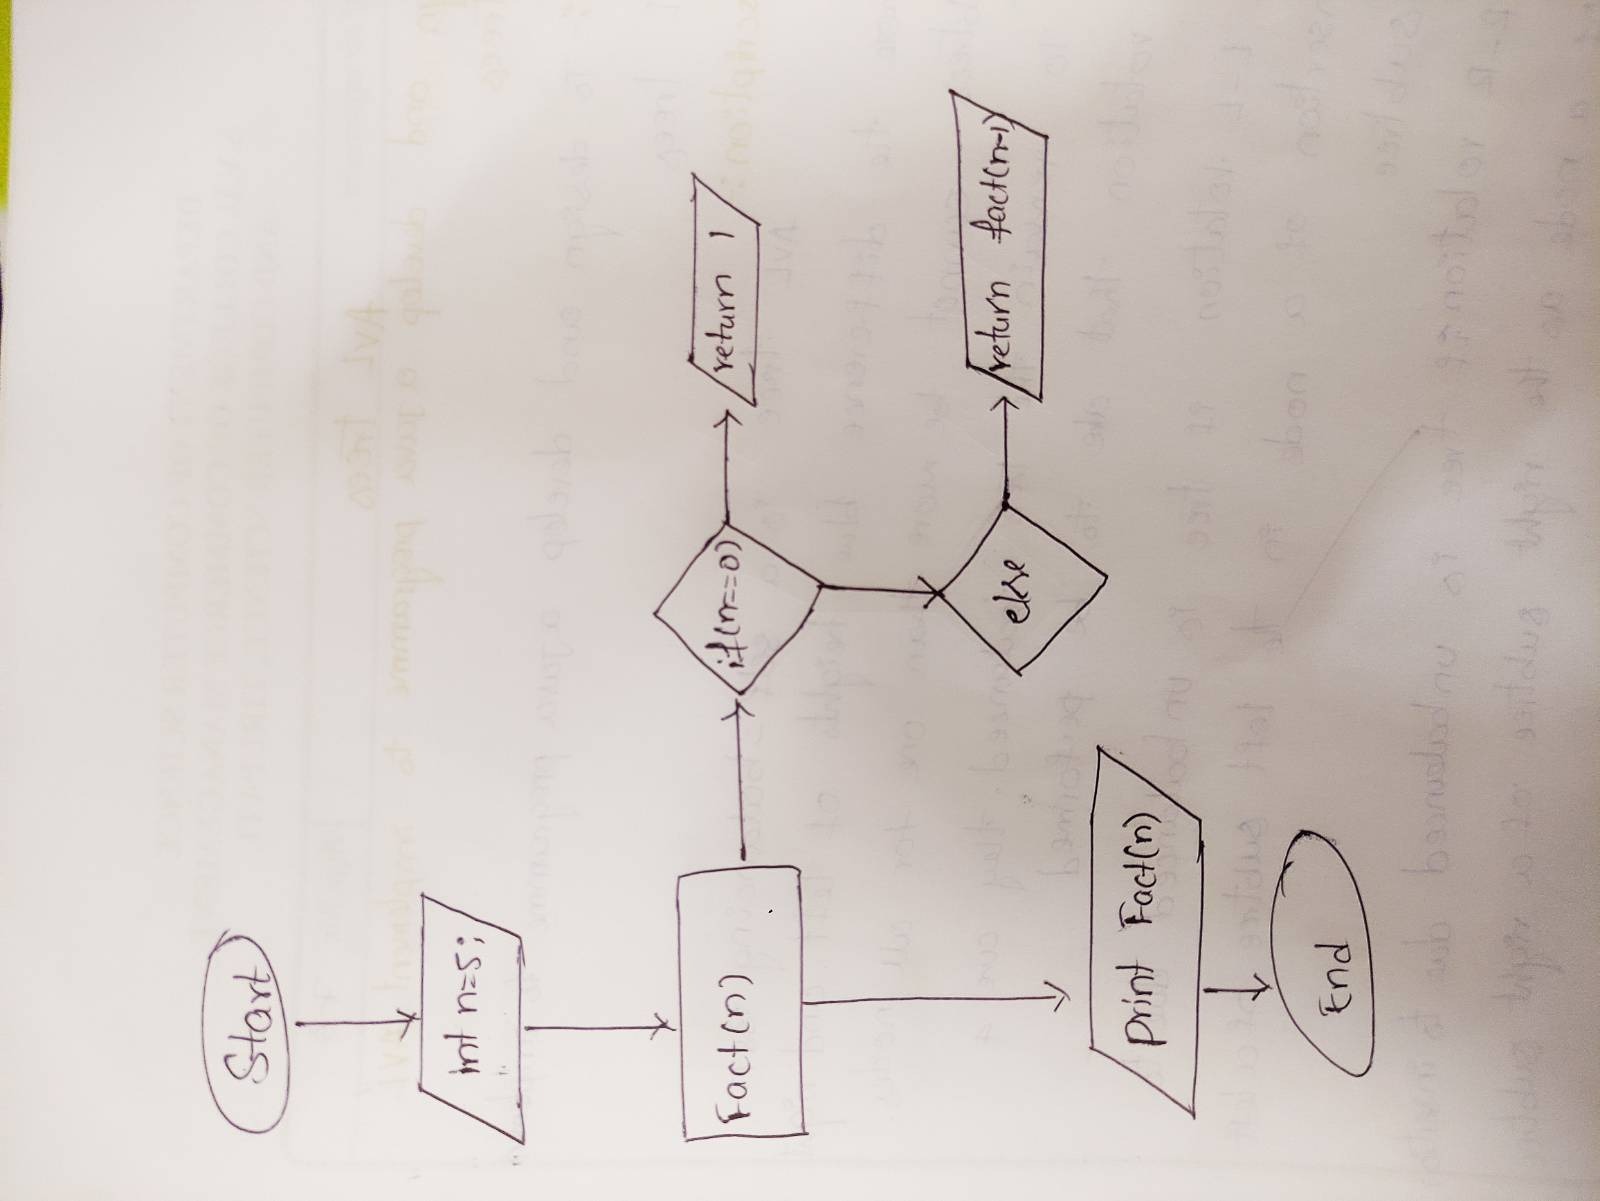 Start
int n=5;
Fact(n)
if(n==0)
return 1
else
return fact(n-1)
print Fact(n)
End